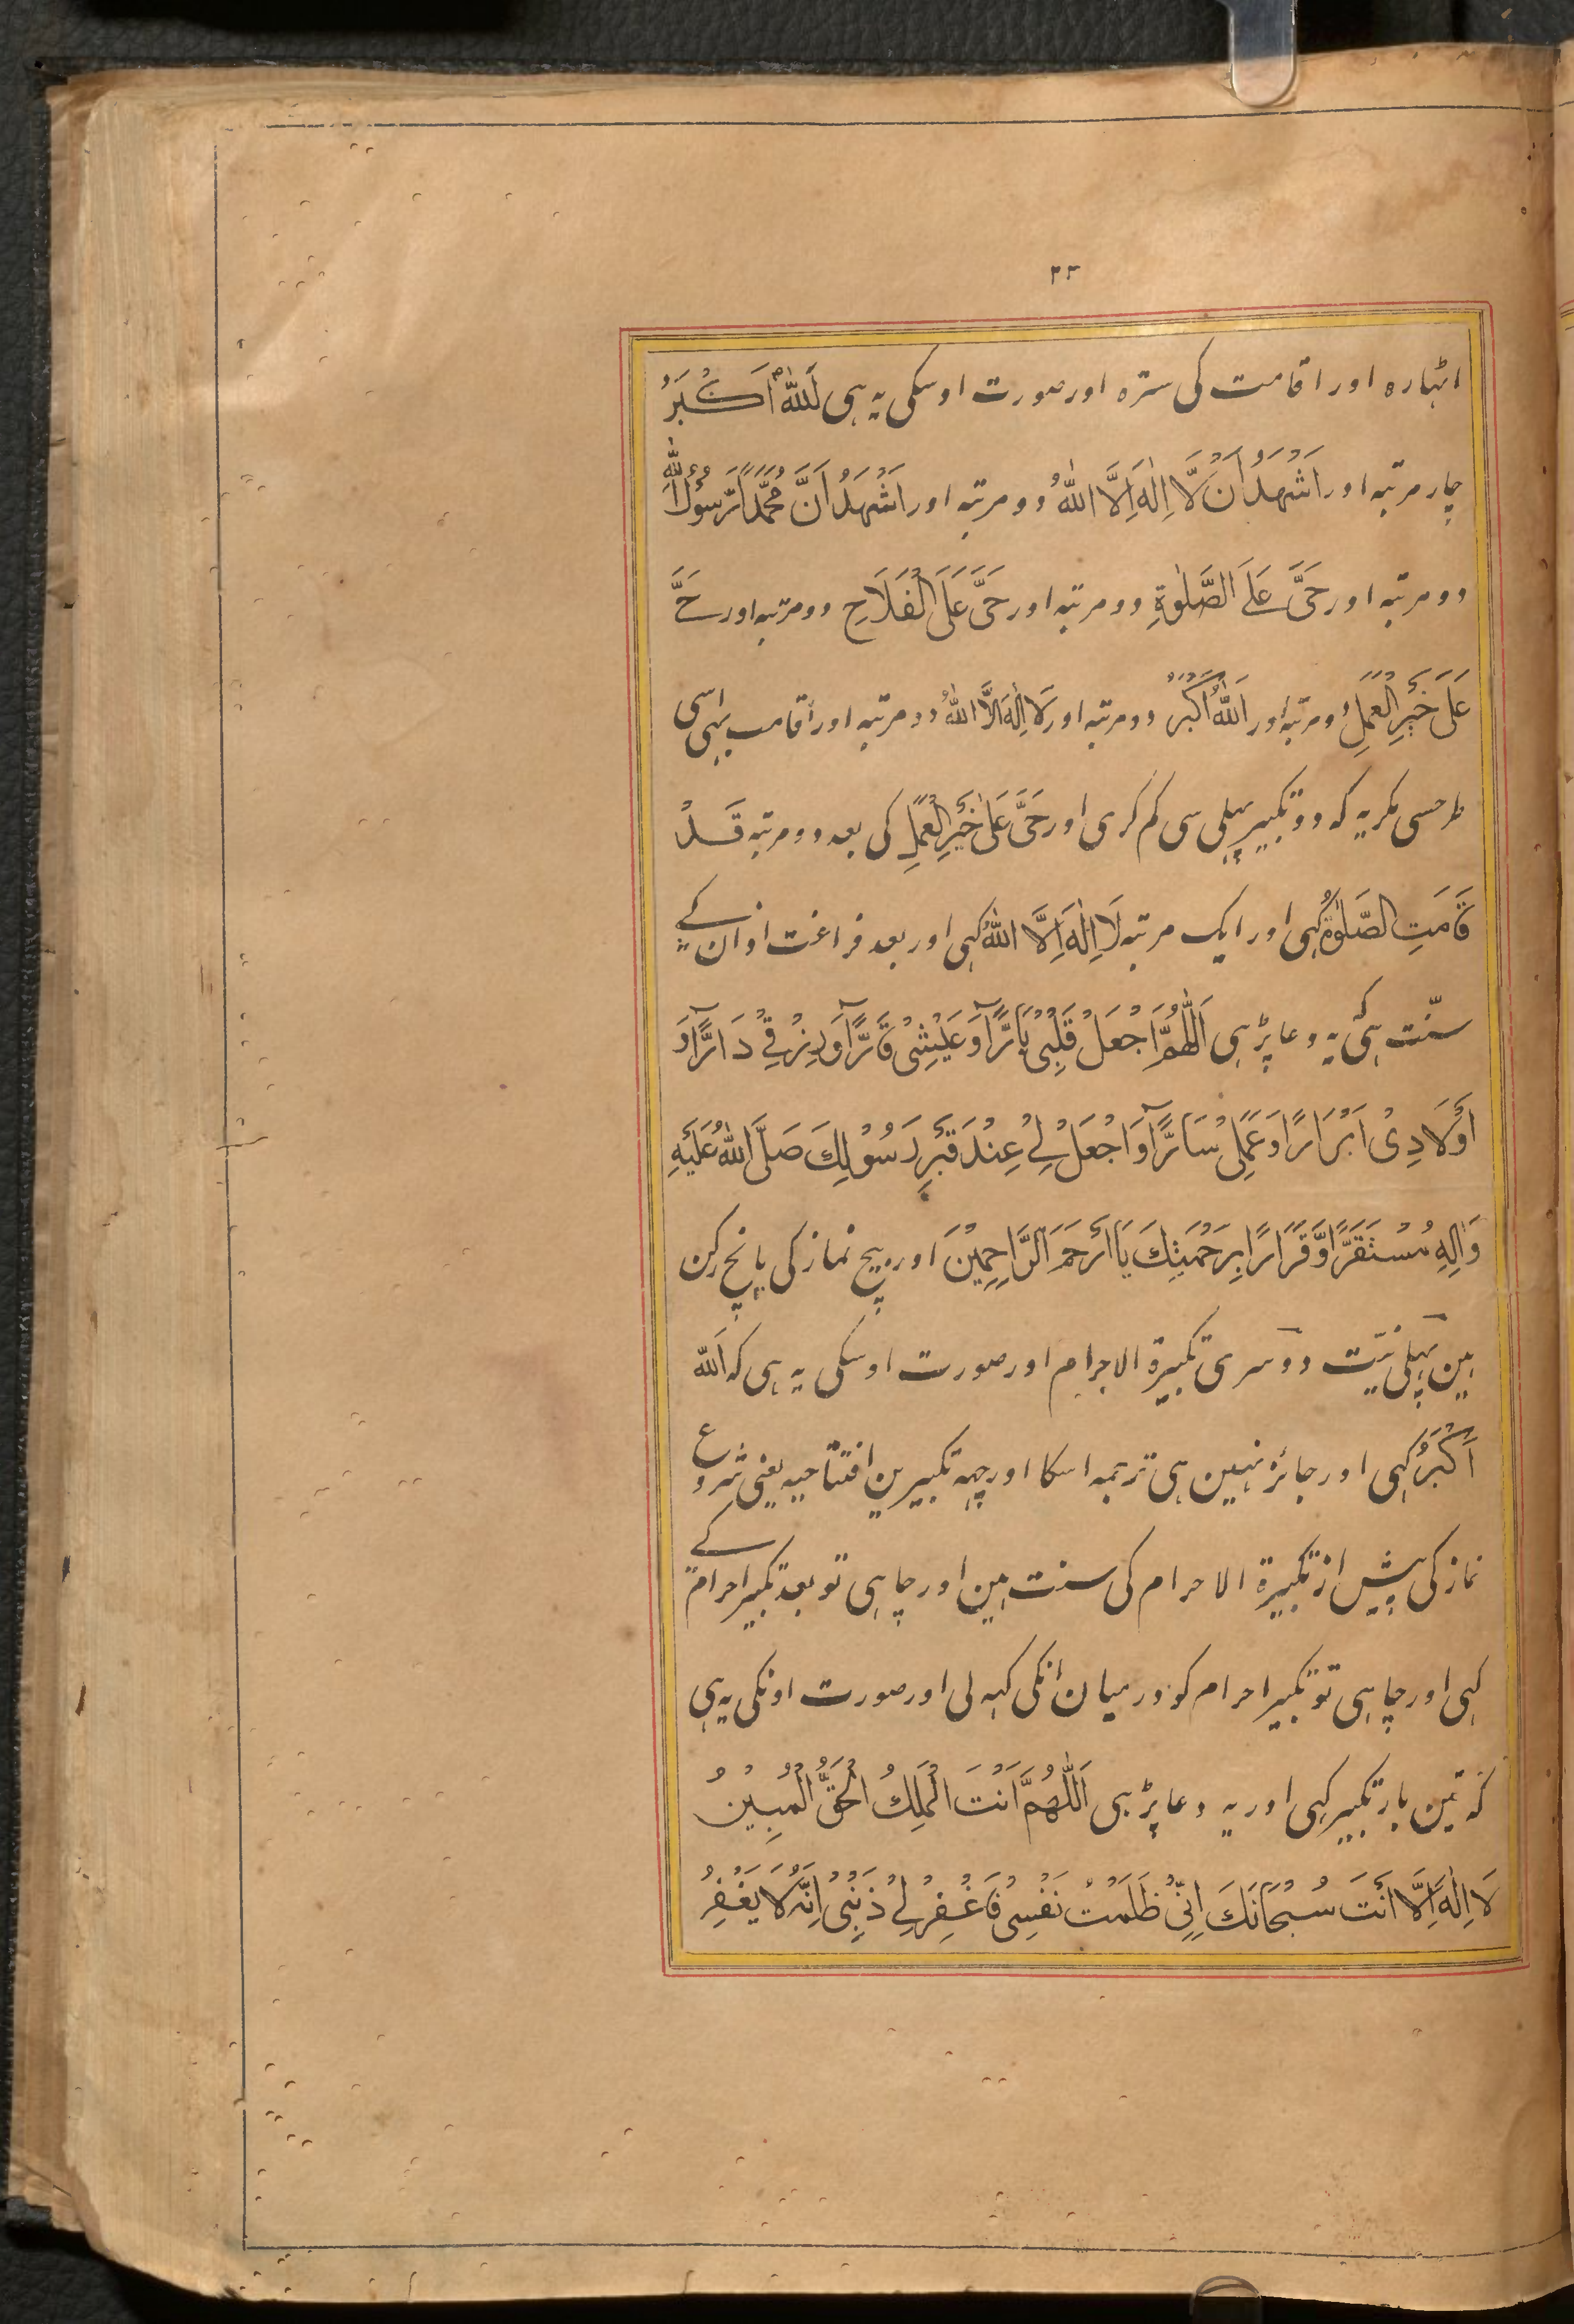 ۲۳
اٹہارہ اور اقامت کی سترہ اور صورت اوسکی یہ ہی اَللّٰهُ اَكْبَرُ
چار مرتبہ اور اَشْهَدُ اَنْ لَّا اِلٰهَ اِلَّا اللّٰهُ دو مرتبہ اور اَشْهَدُ اَنَّ مُحَمَّدًا رَّسُوْلُ اللّٰهِ
دو مرتبہ اور حَیَّ عَلَے الصَّلٰوةِ دو مرتبہ اور حَیَّ عَلَی الْفَلَاحِ دو مرتبہ اور حَیَّ
عَلٰی خَیْرِ الْعَمَلِ دو مرتبہ اور اَللّٰهُ اَكْبَرُ دو مرتبہ اور لَا اِلٰهَ اِلَّا اللّٰهُ دو مرتبہ اور اقامت بہی اسی
طرحسی مگر یہ کہ دو تکبیر پہلی سی کم کری اور حَیَّ عَلٰی خَیْرِ الْعَمَلِ کی بعد دو مرتبہ قَدْ
قَامَتِ الصَّلٰوةُ کہی اور ایک مرتبہ لَا اِلٰهَ اِلَّا اللّٰهُ کہی اور بعد فراغت اذان کے
سنّت ہی کہ یہ دعا پڑہی اَللّٰهُمَّ اجْعَلْ قَلْبِیْ بَارًّا وَّ عَیْشِیْ قَارًّا وَّ رِزْقِیْ دَارًّا وَّ
اَوْلَادِیْ اَبْرَارًا وَ عَمَلِیْ سَارًّا وَّ اجْعَلْ لِیْ عِنْدَ قَبْرِ رَسُوْلِكَ صَلَّی اللّٰهُ عَلَیْهِ
وَ اٰلِهٖ مُسْتَقَرًّا وَّ قَرَارًا بِرَحْمَتِكَ یَا اَرْحَمَ الرَّاحِمِیْنَ اور بیچ نماز کی پانچ رکن
ہین پہلی نیّت دوسری تکبیرة الاحرام اور صورت اوسکی یہ ہی کہ اَللّٰهُ
اَكْبَرُ کہی اور جائز نہین ہی ترجمہ اسکا اور چہہ تکبیرین افتتاحیہ یعنی شروع
نماز کی پیش از تکبیرة الاحرام کی سنت ہین اور چاہی تو بعد تکبیر احرام کے
کہی اور چاہی تو تکبیر احرام کو درمیان انکی کہہ لی اور صورت اونکی یہ ہی
کہ تین بار تکبیر کہی اور یہ دعا پڑہی اَللّٰهُمَّ اَنْتَ الْمَلِكُ الْحَقُّ الْمُبِیْنُ
لَا اِلٰهَ اِلَّا اَنْتَ سُبْحَانَكَ اِنِّیْ ظَلَمْتُ نَفْسِیْ فَاغْفِرْ لِیْ ذَنْبِیْ اِنَّهٗ لَا یَغْفِرُ